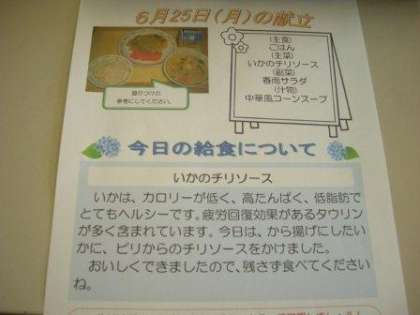 6月25日(月)の献立
(主食)
ごはん
(主菜)
いかのチリソース
(副菜)
春雨サラダ
(汁物)
中華風コーンスープ
盛りつけの
参考にしてください。
今日の給食について
いかのチリソース
いかは、カロリーが低く、高たんぱく、低脂肪で
とてもヘルシーです。疲労回復効果があるタウリン
が多く含まれています。今日は、から揚げにしたい
かに、ピリからのチリソースをかけました。
おいしくできましたので、残さず食べてください
ね。